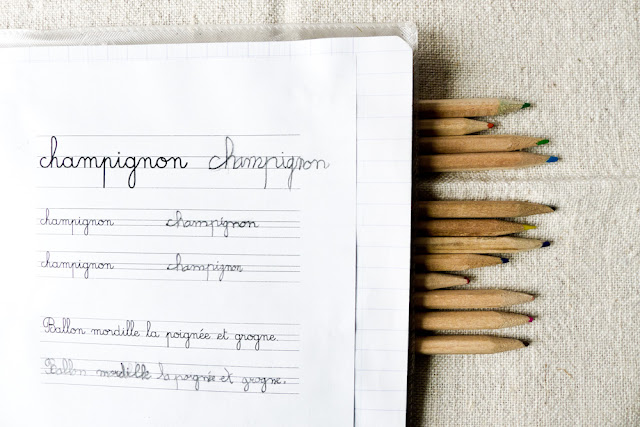 champignon champignon
champignon champignon
champignon champignon
Ballon mordille la poignée et grogne.
Ballon mordille la poignée et grogne.